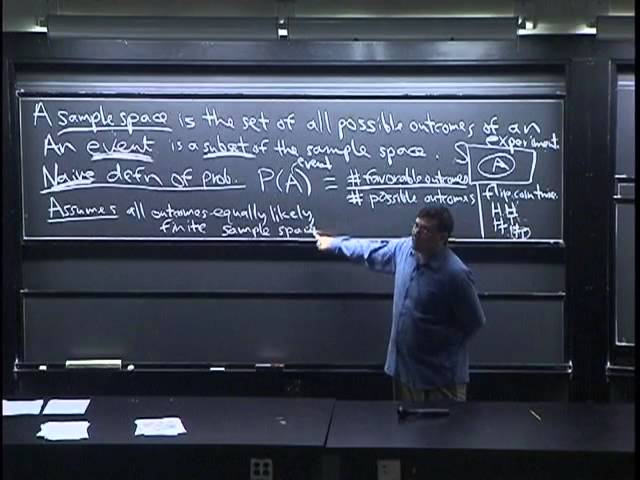 A sample space is the set of all possible outcomes of an experiment.
An event is a subset of the sample space. S
A
Naive defn of prob. P(A) = # favorable outcomes
event
# possible outcomes
Assumes all outcomes equally likely,
finite sample space
flip coin twice
HH
HT